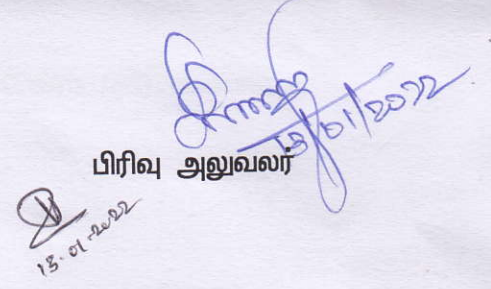 13/01/2022
பிரிவு அலுவலர்
13.01.2022